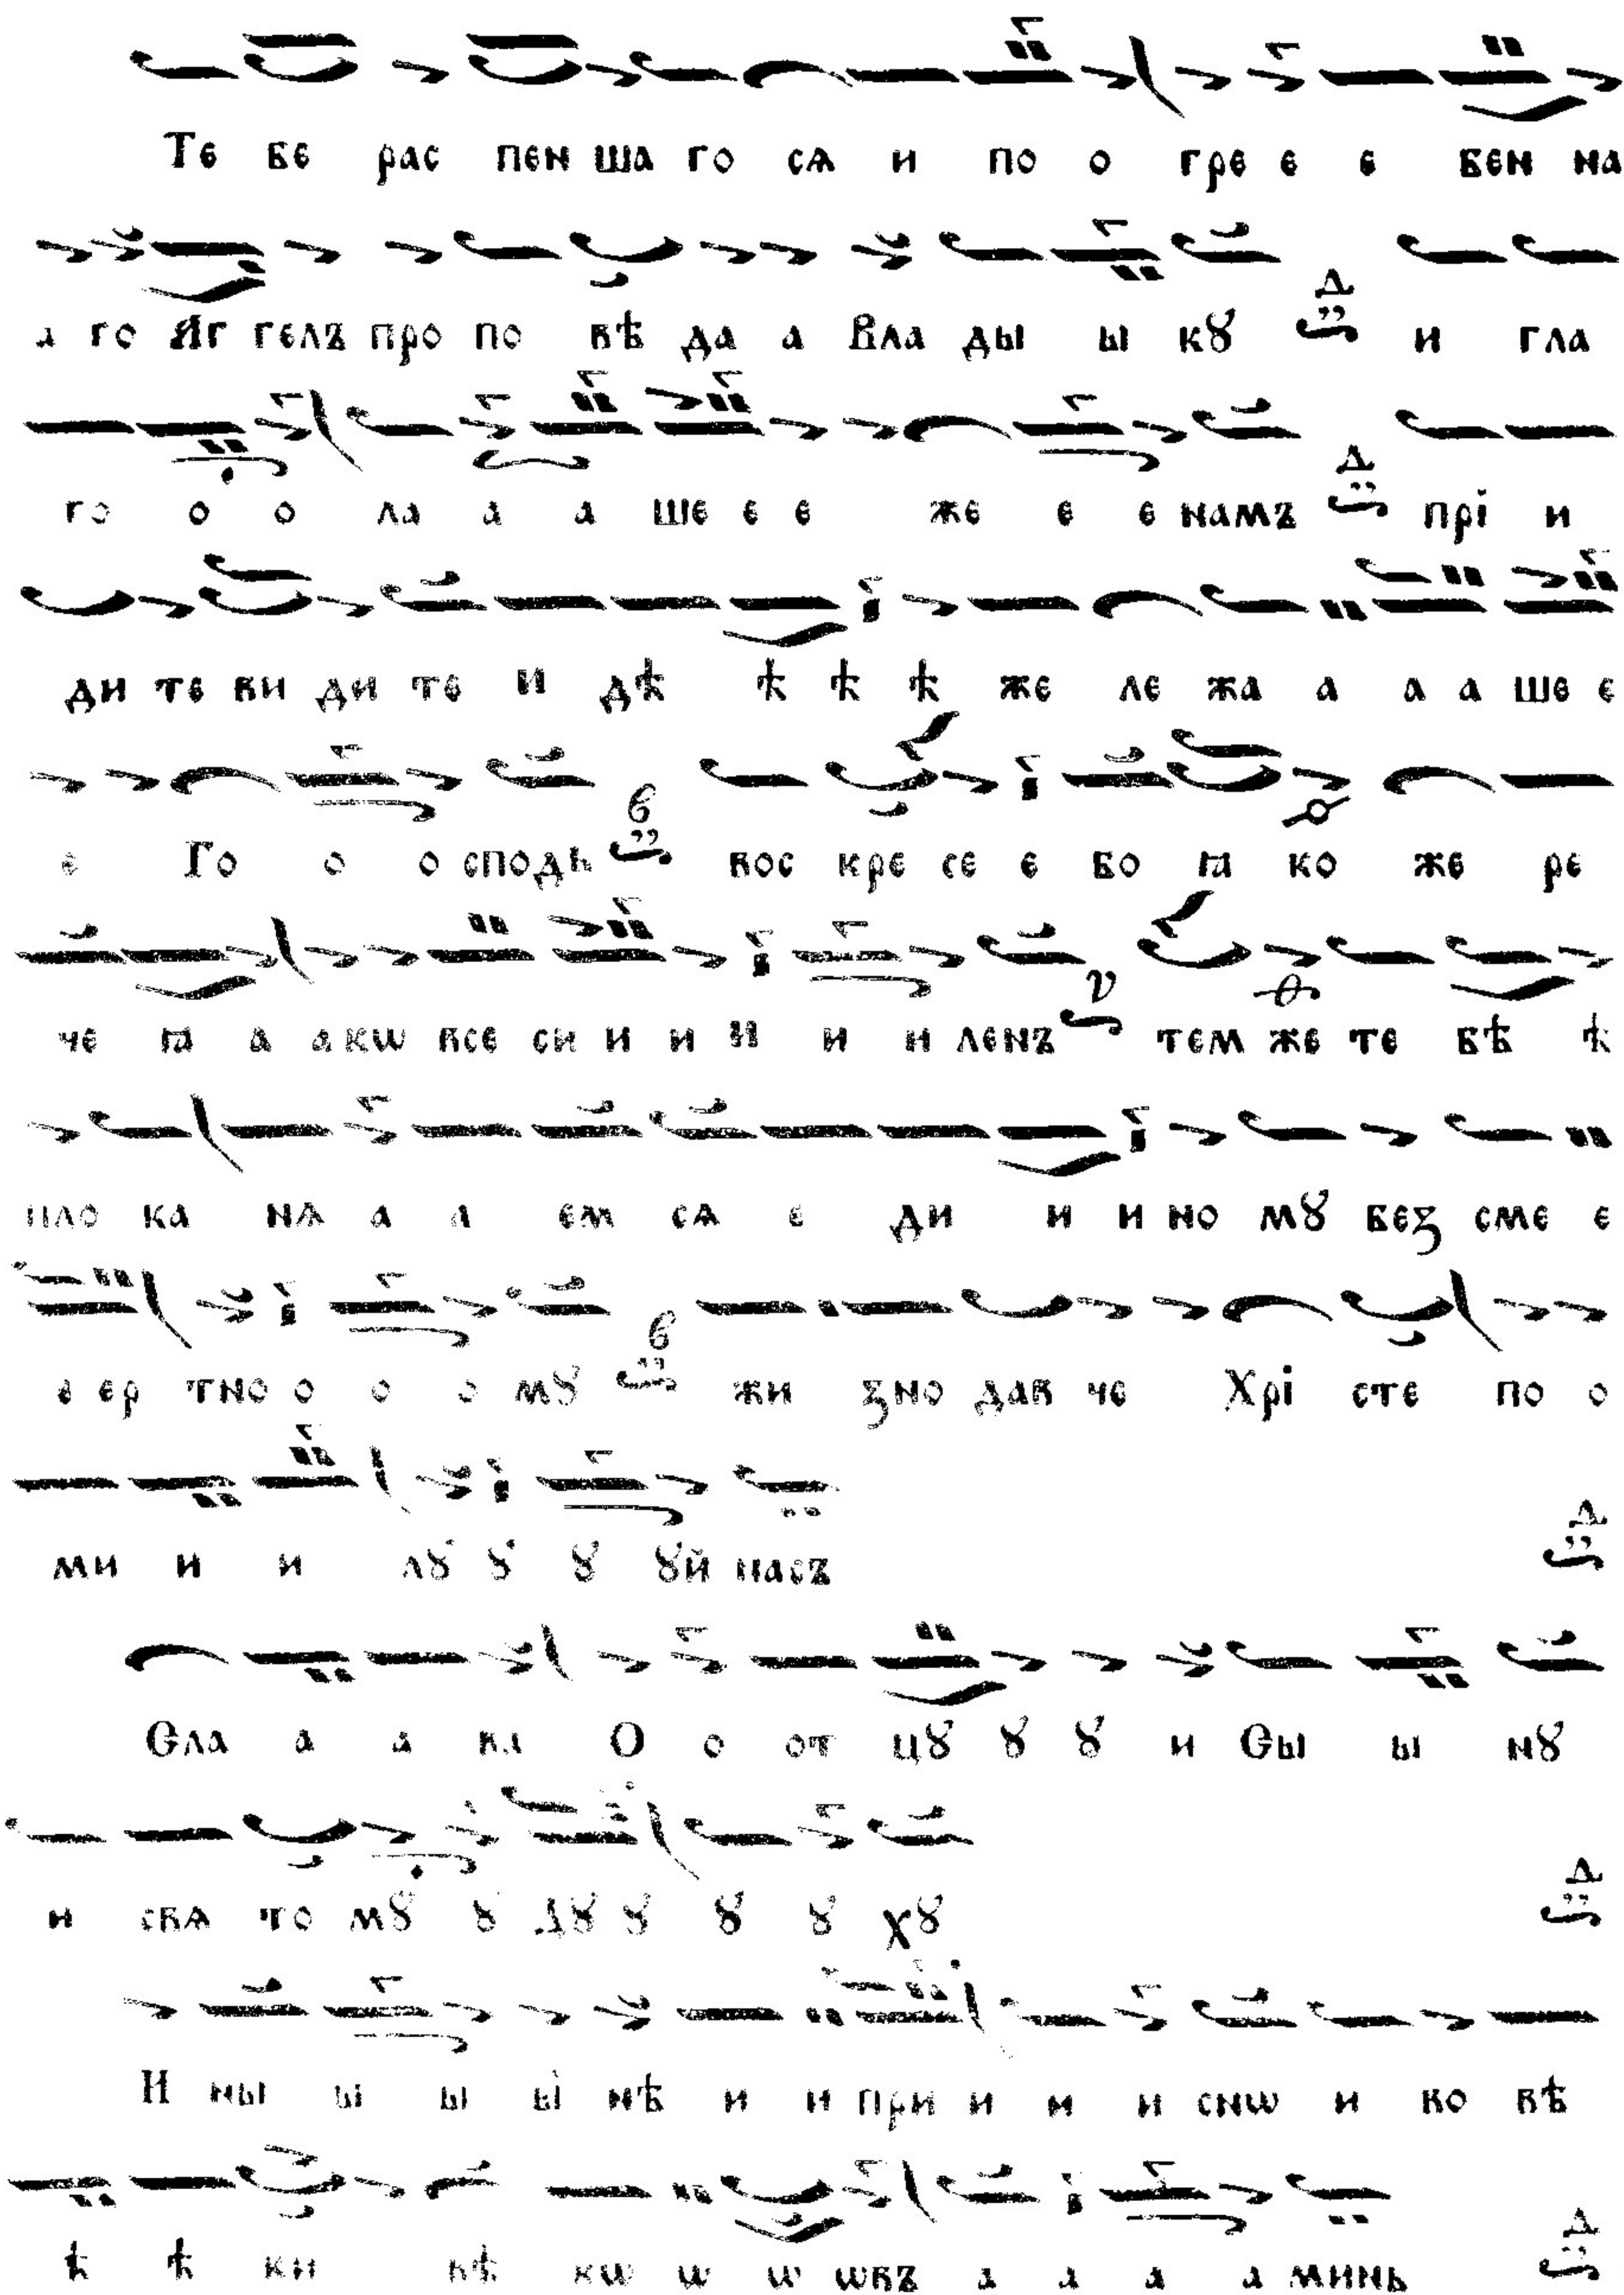 Те бе рас пен ша го сѧ и по о гре е е бен на
а го Аг гелъ про по вѣ да а Вла ды ы кꙋ и гла
го о о ла а а ше е е же е е намъ прі и
ди те ви ди те и дѣ ѣ ѣ ѣ же ле жа а а а ше е
е Го о о сподь вос кре се е бо ꙗ ко же ре
че ꙗ а акѡ все си и и и и и ленъ тем же те бѣ ѣ
пло ка нѧ а а ем сѧ е ди и и но мꙋ без сме е
е ер тно о о о мꙋ жи зно дав че Хрі сте по о
ми и и лꙋ ꙋ ꙋ ꙋй насъ
Сла а а ва О о от цꙋ ꙋ ꙋ и Сы ы нꙋ
и свѧ то мꙋ ꙋ дꙋ ꙋ ꙋ ꙋ хꙋ
И ны ы ы ы нѣ и и при и и и снѡ и во вѣ
ѣ ѣ ки вѣ кѡ ѡ ѡ ѡвъ а а а а минь